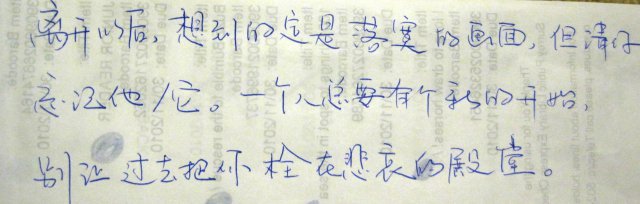 离开以后，想到的定是落寞的画面，但请你
忘记他/它。一个人总要有个新的开始，
别让过去把你栓在悲哀的殿堂。